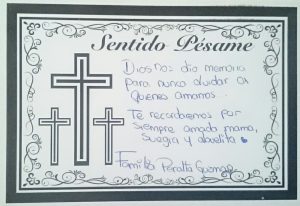 Sentido Pésame
Dios nos dio memoria
para nunca olvidar a
Quienes amamos.
Te recordaremos por
siempre amada mama,
suegra y abuelita
Familia Peralta